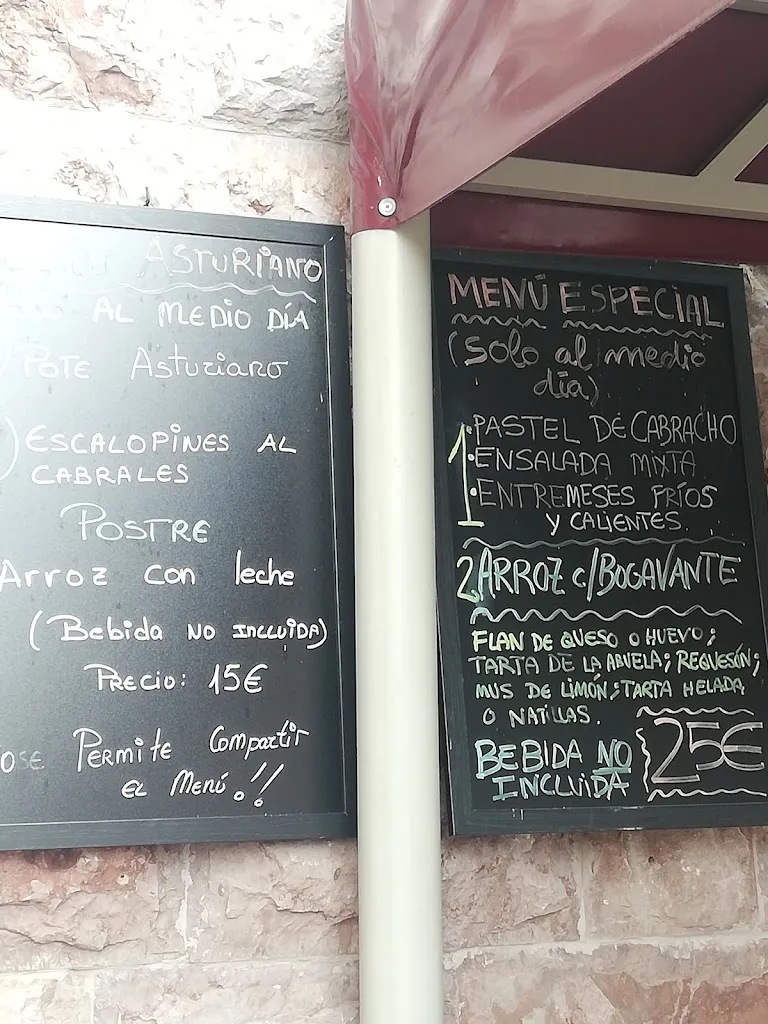 ASTURIANO
AL MEDIO DÍA
POTE Asturiano
) ESCALOPINES AL
CABRALES
POSTRE
Arroz con leche
(Bebida NO INCLUIDA)
PRECIO: 15€
OSE Permite Compartir
EL Menú.!!
MENÚ ESPECIAL
(solo al medio
día)
1 · PASTEL DE CABRACHO
· ENSALADA MIXTA
· ENTREMESES FRÍOS
Y CALIENTES.
2 ARROZ c/BOGAVANTE
FLAN DE QUESO O HUEVO;
TARTA DE LA ABUELA; REQUESÓN;
MUS DE LIMÓN; TARTA HELADA
O NATILLAS.
BEBIDA NO
INCLUIDA
25€